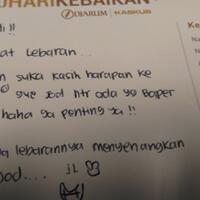 UHARIKEBAIKAN
DJARUM KASKUS
i !!
at Lebaran ...
n suka kasih harapan ke
@ gue xod ntr ada yg baper
haha ga penting ya !!
a lebarannya menyenangkan
ood....
Ke
Na
N